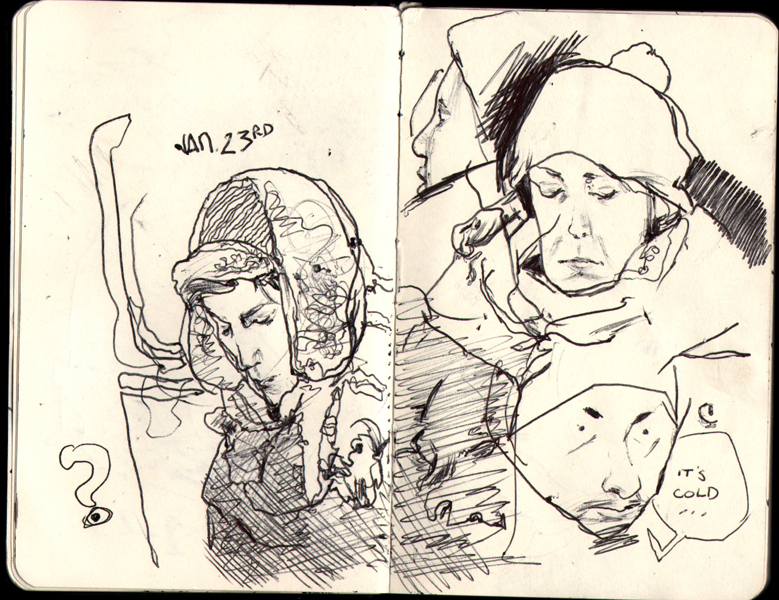 JAN. 23RD
?
IT'S
COLD
...